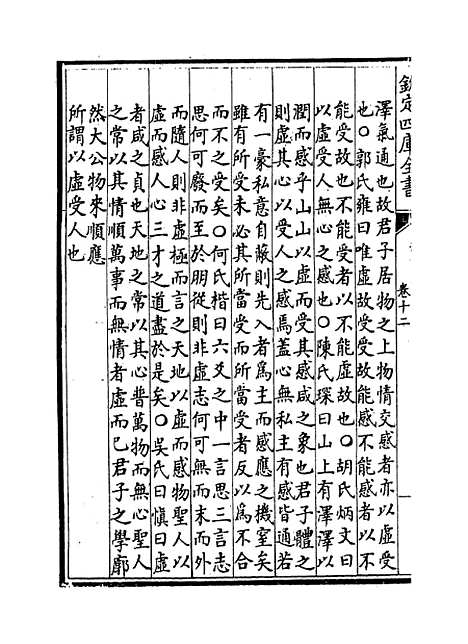 欽定四庫全書
卷十二
澤氣通也故君子居物之上物情交感者亦以虛受
也〇郭氏雍曰唯虛故受受故能感不能感者以不
能受故也不能受者以不能虛故也〇胡氏炳文曰
以虛受人無心之感也〇陳氏琛曰山上有澤澤以
潤而感乎山山以虛而受其感咸之象也君子體之
則虛其心以受人之感焉蓋心無私主有感皆通若
有一豪私意自蔽則先入者為主而感應之機窒矣
雖有所受未必其所當受而所當受者反以為不合
而不之受矣〇何氏楷曰六爻之中一言思三言志
思何可廢而至於朋從則非虛志何可無而末而外
而隨人則非虛極而言之天地以虛而感物聖人以
虛而感人心三才之道盡於是矣〇吳氏曰愼曰虛
者咸之貞也天地之常以其心普萬物而無心聖人
之常以其情順萬事而無情者虛而已君子之學廓
然大公物來順應
所謂以虛受人也